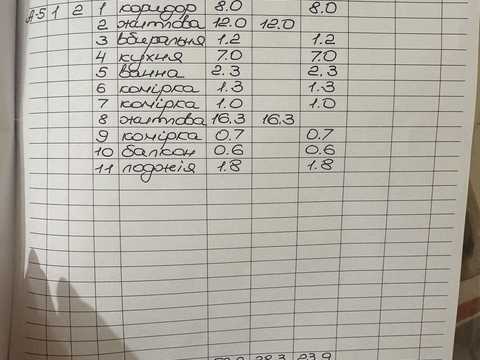 А-5 1 2 1 коридор 8.0 8.0
2 житлова 12.0 12.0
3 вбиральня 1.2 1.2
4 кухня 7.0 7.0
5 ванна 2.3 2.3
6 комірка 1.3 1.3
7 комірка 1.0 1.0
8 житлова 16.3 16.3
9 комірка 0.7 0.7
10 балкон 0.6 0.6
11 лоджія 1.8 1.8
28.3 23.9